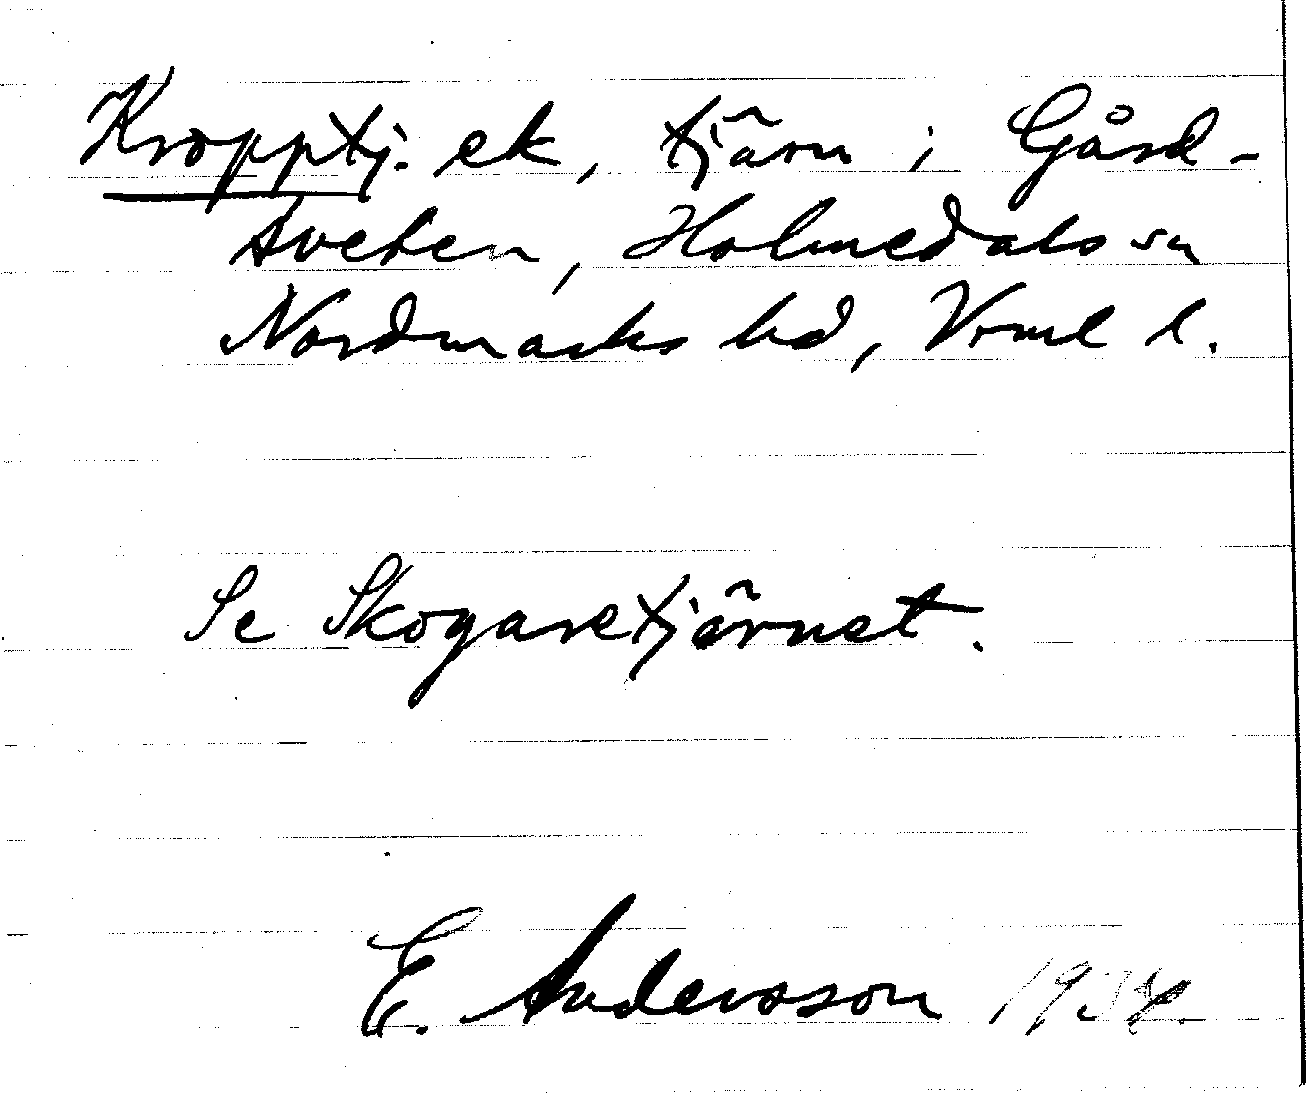 Kropptj. ek, tjärn i Gård-
sveten, Holmedals sn
Nordmarks hd, Vrml l.
Se Skogaretjärnet.
E. Andersson